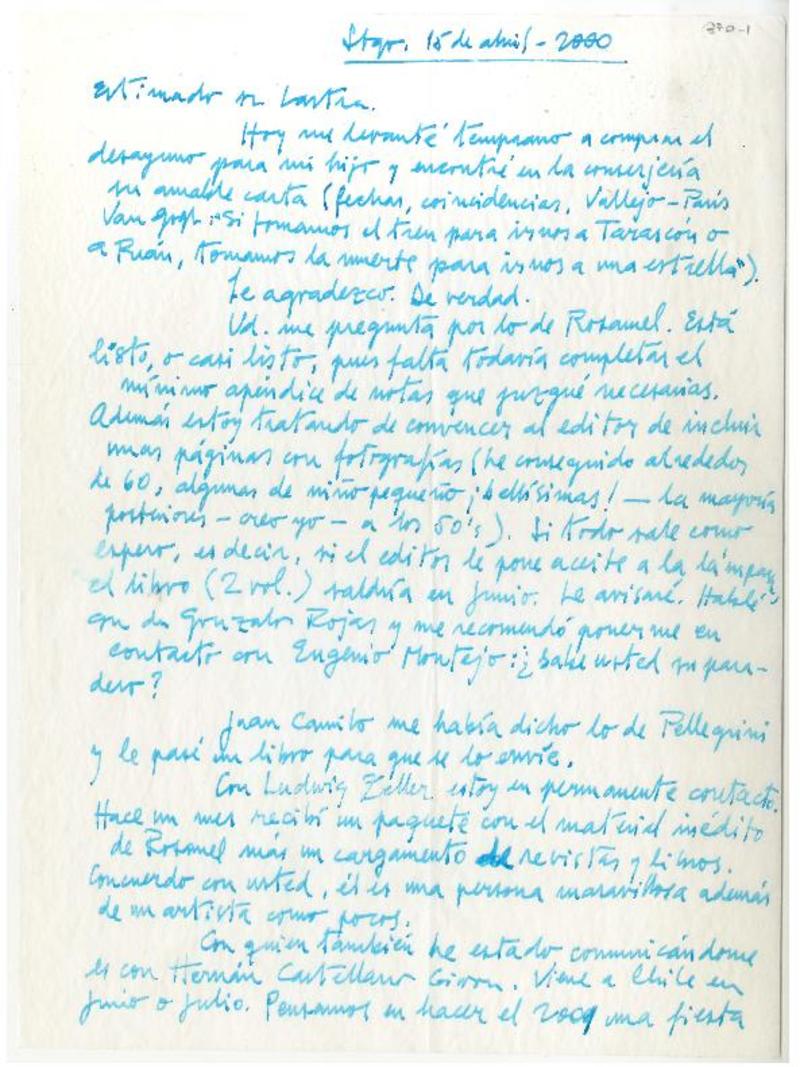 370-1
Stgo. 15 de abril - 2000
Estimado sr Lastra.
Hoy me levanté temprano a comprar el
desayuno para mi hijo y encontré en la conserjería
su amable carta (fechas, coincidencias, Vallejo - París
Van Gogh: "Si tomamos el tren para irnos a Tarascón o
a Ruán, tomamos la muerte para irnos a una estrella").
Le agradezco. De verdad.
Ud. me pregunta por lo de Rosamel. Está
listo, o casi listo, pues falta todavía completar el
mínimo apéndice de notas que juzgué necesarias.
Además estoy tratando de convencer al editor de incluir
unas páginas con fotografías (he conseguido alrededor
de 60, algunas de niño pequeño ¡bellísimas! — la mayoría
posteriores - creo yo - a los 50's). Si todo sale como
espero, es decir, si el editor le pone aceite a la lámpara,
el libro (2 vol.) saldría en Junio. Le avisaré. Hablé
con dn Gonzalo Rojas y me recomendó ponerme en
contacto con Eugenio Montejo: ¿Sabe usted su para-
dero?
Juan Camilo me había dicho lo de Pellegrini
y le pasé un libro para que se lo envíe.
Con Ludwig Zeller estoy en permanente contacto.
Hace un mes recibí un paquete con el material inédito
de Rosamel más un cargamento de revistas y libros.
Concuerdo con usted, él es una persona maravillosa además
de un artista como pocos.
Con quien también he estado comunicándome
es con Hernán Castellano Giron. Viene a Chile en
Junio o Julio. Pensamos en hacer el 2001 una fiesta